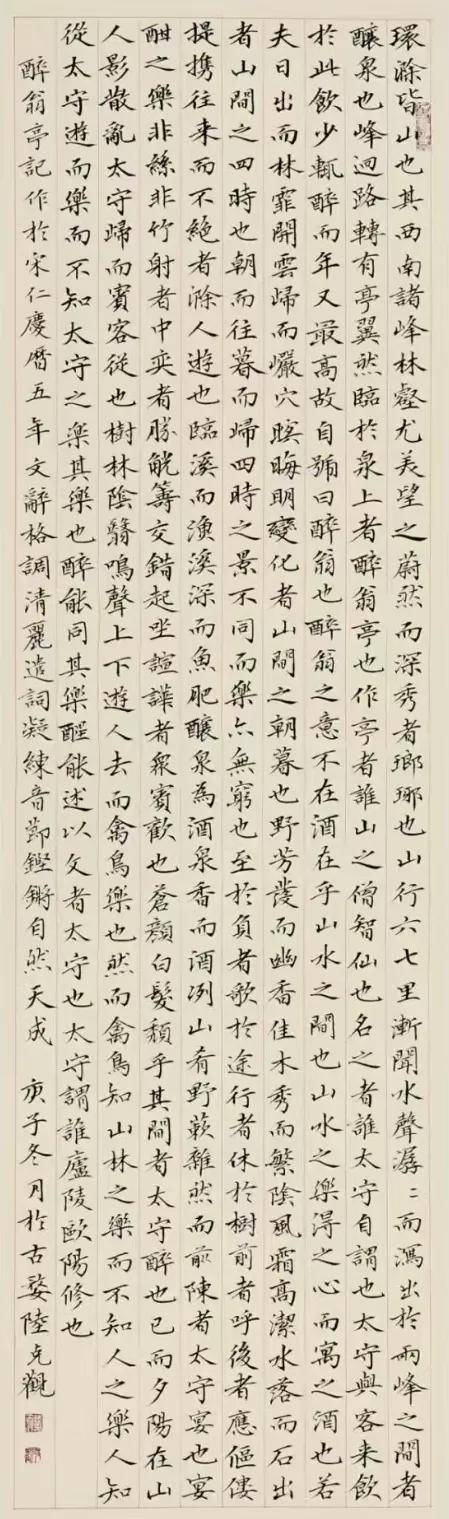 環滁皆山也其西南諸峰林壑尤美望之蔚然而深秀者瑯琊也山行六七里漸聞水聲潺〻而瀉出於兩峰之間者
釀泉也峰迴路轉有亭翼然臨於泉上者醉翁亭也作亭者誰山之僧智仙也名之者誰太守自謂也太守與客来飲
於此飲少輒醉而年又最高故自號曰醉翁也醉翁之意不在酒在乎山水之間也山水之樂得之心而寓之酒也若
夫日出而林霏開雲歸而巖穴暝晦明變化者山間之朝暮也野芳發而幽香佳木秀而繁陰風霜高潔水落而石出
者山間之四時也朝而往暮而歸四時之景不同而樂亦無窮也至於負者歌於途行者休於樹前者呼後者應傴僂
提攜往来而不絕者滁人遊也臨溪而漁溪深而魚肥釀泉為酒泉香而酒冽山肴野蔌雜然而前陳者太守宴也宴
酣之樂非絲非竹射者中奕者勝觥籌交錯起坐諠譁者眾賓歡也蒼顏白髮頹乎其間者太守醉也已而夕陽在山
人影散亂太守歸而賓客從也樹林陰翳鳴聲上下遊人去而禽鳥樂也然而禽鳥知山林之樂而不知人之樂人知
從太守遊而樂而不知太守之樂其樂也醉能同其樂醒能述以文者太守也太守謂誰廬陵歐陽修也
醉翁亭記作於宋仁慶曆五年文辭格調清麗遣詞凝練音節鏗鏘自然天成 庚子冬月於古婺陸克觀